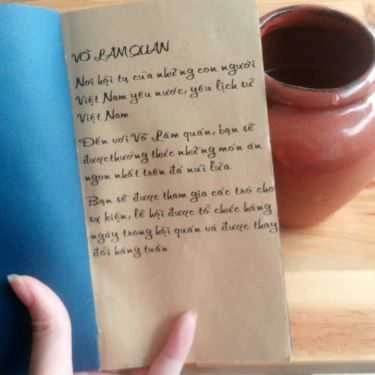 VÕ LÂM QUÁN
Nơi hội tụ của những con người
Việt Nam yêu nước, yêu lịch sử
Việt Nam
Đến với Võ Lâm quán, bạn sẽ
đượcthưởng thức những món ăn
ngon nhất trên đá núi lửa.
Bạn sẽ được tham gia các trò chơ
sự kiện, lễ hội được tổ chức hàng
ngày trong hội quán và được thay
đổi hàng tuần